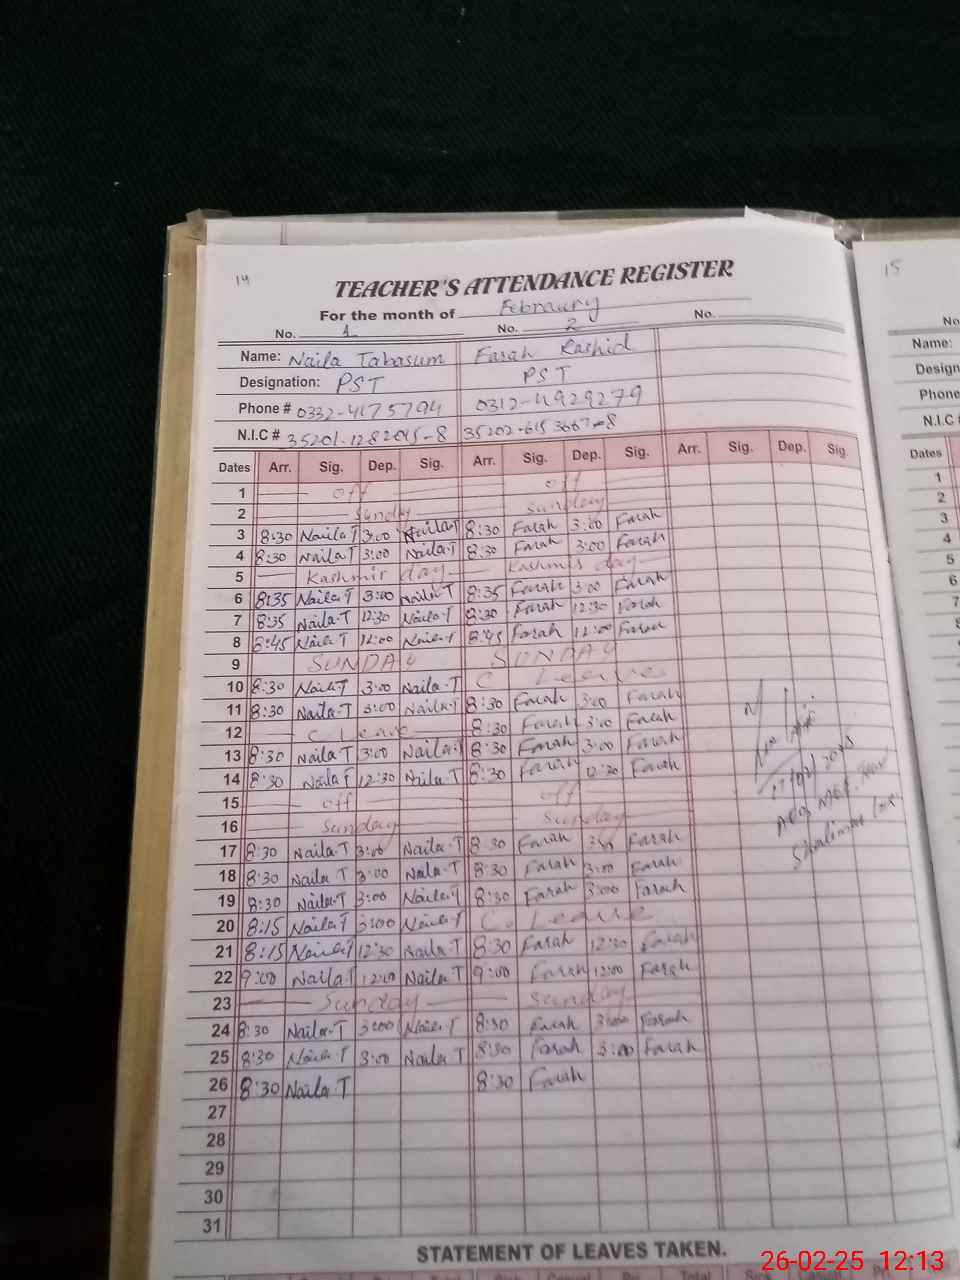 14
TEACHER'S ATTENDANCE REGISTER
For the month of Febraury
No. 1 No. 2 No.
Name: Naila Tabasum Farah Rashid
Designation: PST PST
Phone # 0332-4175794 0312-4929279
N.I.C # 35201-1282095-8 35202-6153667-8
Dates Arr. Sig. Dep. Sig. Arr. Sig. Dep. Sig. Arr. Sig. Dep. Sig.
1 off off
2 Sunday sunday
3 8:30 Naila T 3:00 Naila T 8:30 Farah 3:00 Farah
4 8:30 Naila T 3:00 Naila T 8:30 Farah 3:00 Farah
5 Kashmir day Kashmir day
6 8:35 Naila T 3:00 Naila T 8:35 Farah 3:00 Farah
7 8:35 Naila T 12:30 Naila T 8:30 Farah 12:30 Farah
8 8:45 Naila T 12:00 Naila T 8:45 Farah 12:00 Farah
9 SUNDAY SUNDAY
10 8:30 Naila T 3:00 Naila T C Leave
11 8:30 Naila T 3:00 Naila T 8:30 Farah 3:00 Farah
12 C Leave 8:30 Farah 3:00 Farah
13 8:30 Naila T 3:00 Naila T 8:30 Farah 3:00 Farah
14 8:30 Naila T 12:30 Naila T 8:30 Farah 12:30 Farah
15 off off
16 Sunday Sunday
17 8:30 Naila T 3:00 Naila T 8:30 Farah 3:00 Farah
18 8:30 Naila T 3:00 Naila T 8:30 Farah 3:00 Farah
19 8:30 Naila T 3:00 Naila T 8:30 Farah 3:00 Farah
20 8:15 Naila T 3:00 Naila T C. Leave
21 8:15 Naila T 12:30 Naila T 8:30 Farah 12:30 Farah
22 9:00 Naila T 12:00 Naila T 9:00 Farah 12:00 Farah
23 Sunday Sunday
24 8:30 Naila T 3:00 Naila T 8:30 Farah 3:00 Farah
25 8:30 Naila T 3:00 Naila T 8:30 Farah 3:00 Farah
26 8:30 Naila T 8:30 Farah
27
28
29
30
31
17/02/2025
Shalimar
STATEMENT OF LEAVES TAKEN.
15
No
Name:
Design
Phone
N.I.C #
Dates
1
2
3
4
5
6
7
26-02-25 12:13